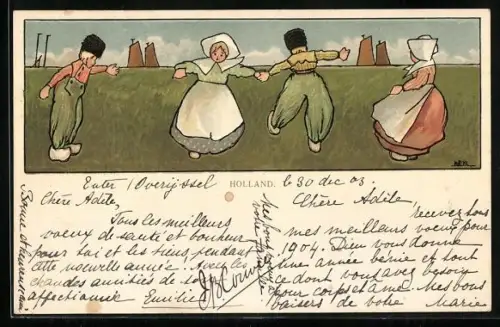 HOLLAND.
Enter / Overijssel
Chère Adèle,
Tous les meilleurs
voeux de santé et bonheur
pour toi et les tiens pendant
cette nouvelle année. Avec les
chaudes amitiés de ton
affectionnée Emilie
Bonne et heureuse
votre
le 30 dec 03.
Chère Adèle,
recevez tous
mes meilleurs voeux pour
1904. Dieu vous donne
une année bénie et tout
ce dont vous avez besoin
pour corps et âme. Mes bons
baisers de votre Marie